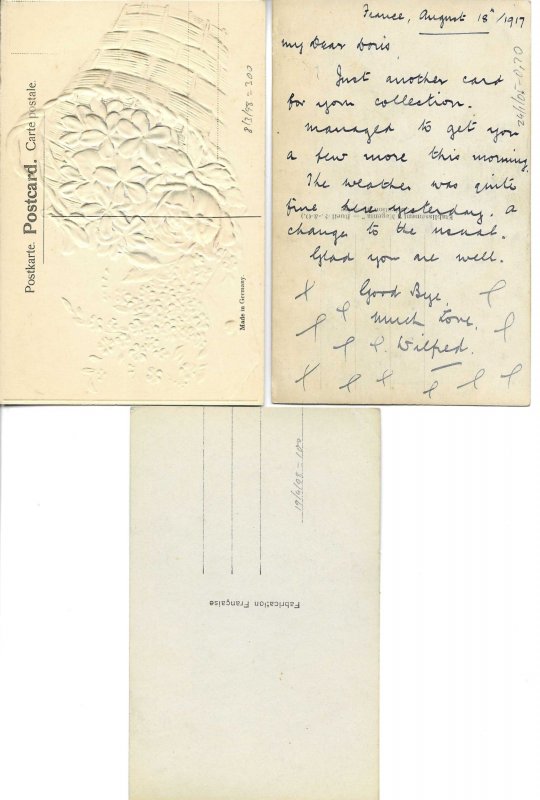 Postkarte. Postcard. Carte postale.
8/3/98 - 3.00
Made in Germany.
France, August 18th/1917
My Dear Doris,
Just another card
for your collection.
Managed to get you
a few more this morning.
The weather was quite
fine here yesterday. A
change to the usual.
Glad you are well.
Good Bye.
Much Love.
Wilfred.
Fabrication Française